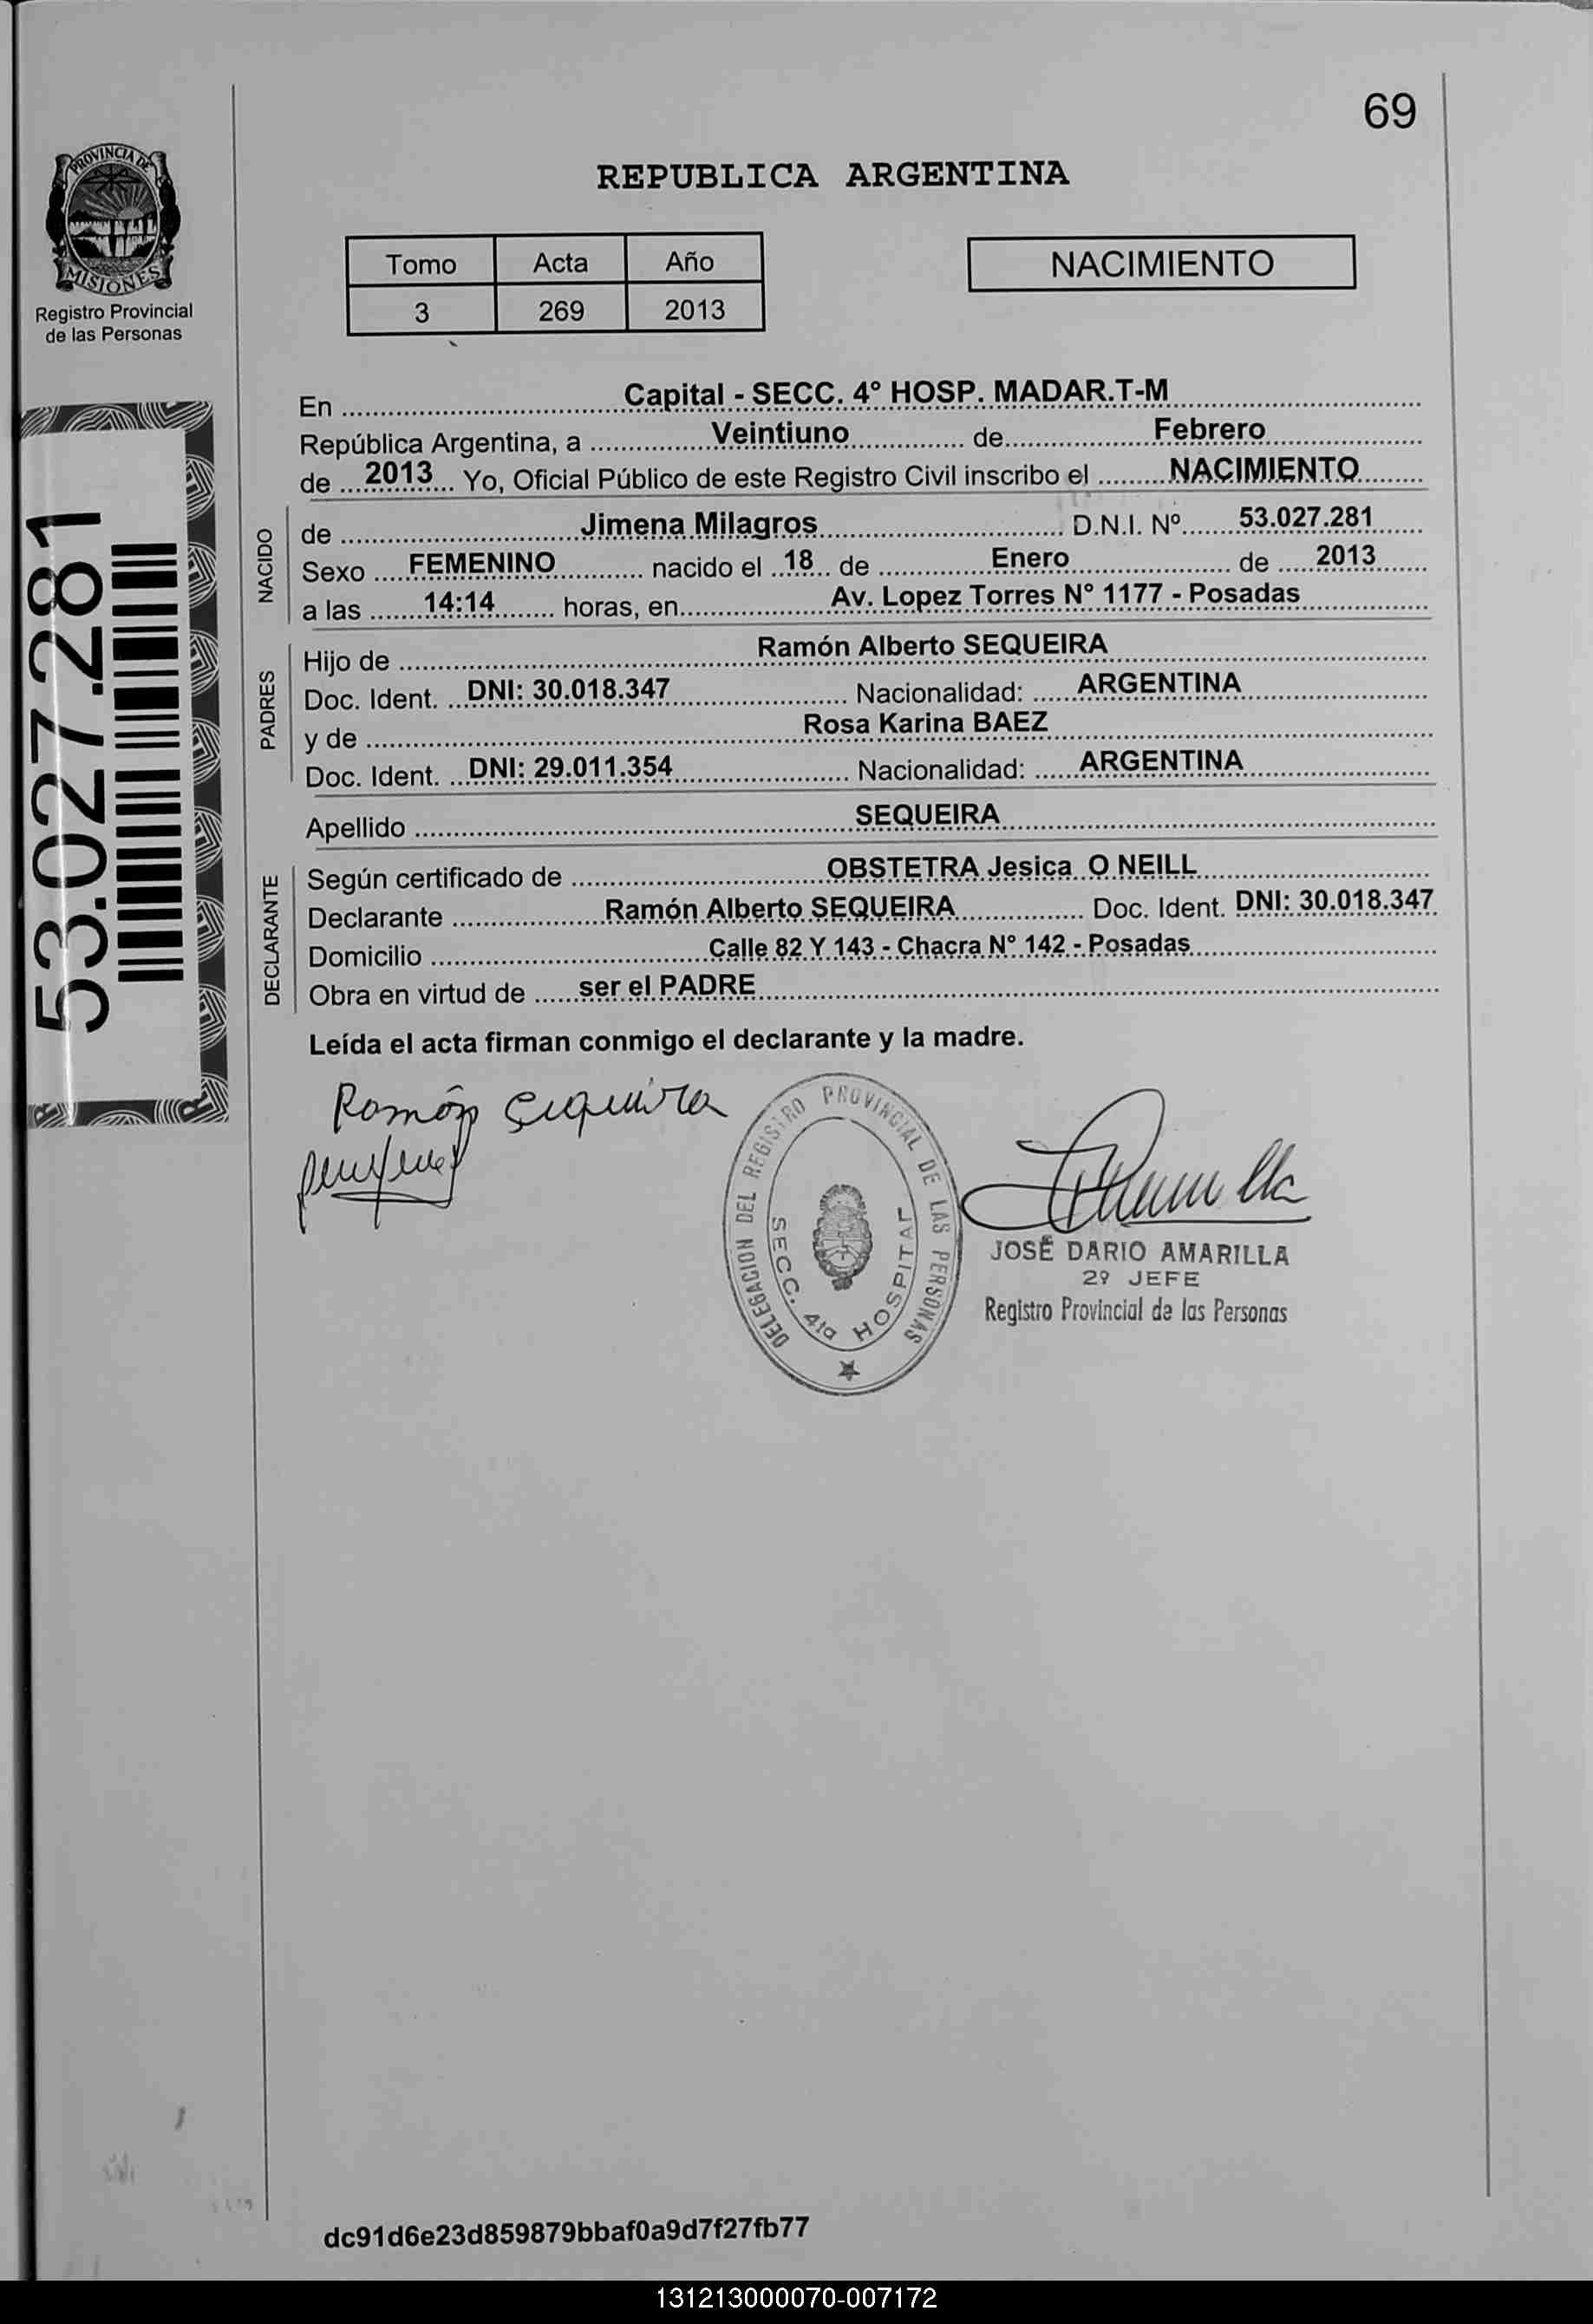 69
PROVINCIA DE
MISIONES
Registro Provincial
de las Personas
REPUBLICA ARGENTINA
Tomo Acta Año
3 269 2013
NACIMIENTO
53.027.281
En Capital - SECC. 4º HOSP. MADAR.T-M
República Argentina, a Veintiuno de Febrero
de 2013 Yo, Oficial Público de este Registro Civil inscribo el NACIMIENTO
NACIDO
de Jimena Milagros D.N.I. Nº 53.027.281
Sexo FEMENINO nacido el 18 de Enero de 2013
a las 14:14 horas, en Av. Lopez Torres N° 1177 - Posadas
PADRES
Hijo de Ramón Alberto SEQUEIRA
Doc. Ident. DNI: 30.018.347 Nacionalidad: ARGENTINA
y de Rosa Karina BAEZ
Doc. Ident. DNI: 29.011.354 Nacionalidad: ARGENTINA
Apellido SEQUEIRA
DECLARANTE
Según certificado de OBSTETRA Jesica O NEILL
Declarante Ramón Alberto SEQUEIRA Doc. Ident. DNI: 30.018.347
Domicilio Calle 82 Y 143 - Chacra N° 142 - Posadas
Obra en virtud de ser el PADRE
Leída el acta firman conmigo el declarante y la madre.
Ramón Sequeira
DELEGACION DEL REGISTRO PROVINCIAL DE LAS PERSONAS
SECC. 4ta HOSPITAL
JOSÉ DARIO AMARILLA
2º JEFE
Registro Provincial de las Personas
dc91d6e23d859879bbaf0a9d7f27fb77
131213000070-007172